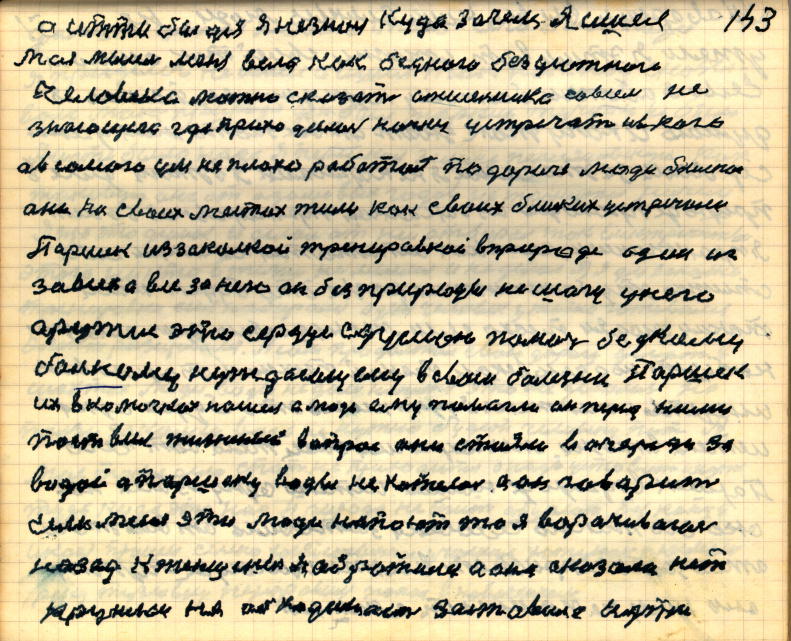 а итти было я незнал куда зачем Я ишел 143
моя меня вела как бедного безуютного
Человека можно сказать совсем не
где приходилось ночку устречать и кого
а в самого ум не плохо работал по дороге люди
они на своих местах жили как своих близких устречали
Паршек иззакалкой тренировкой в природе один из
завсех а все за него он без природы не шагу унего
аружие это серцем сдушою помоч бедному
болному нуждающемуся в своей болезни Паршек
их в камочках нашел а люди ему помагли он перед ними
поставил жизненый вопрос они стояли в очереди за
водой а Паршеку воды не хотелос а он говарит
если меня эти люди напоют то я ворачиваюсь
назад К женщине Я обротился а она сказала нет
кружки не заставила идти